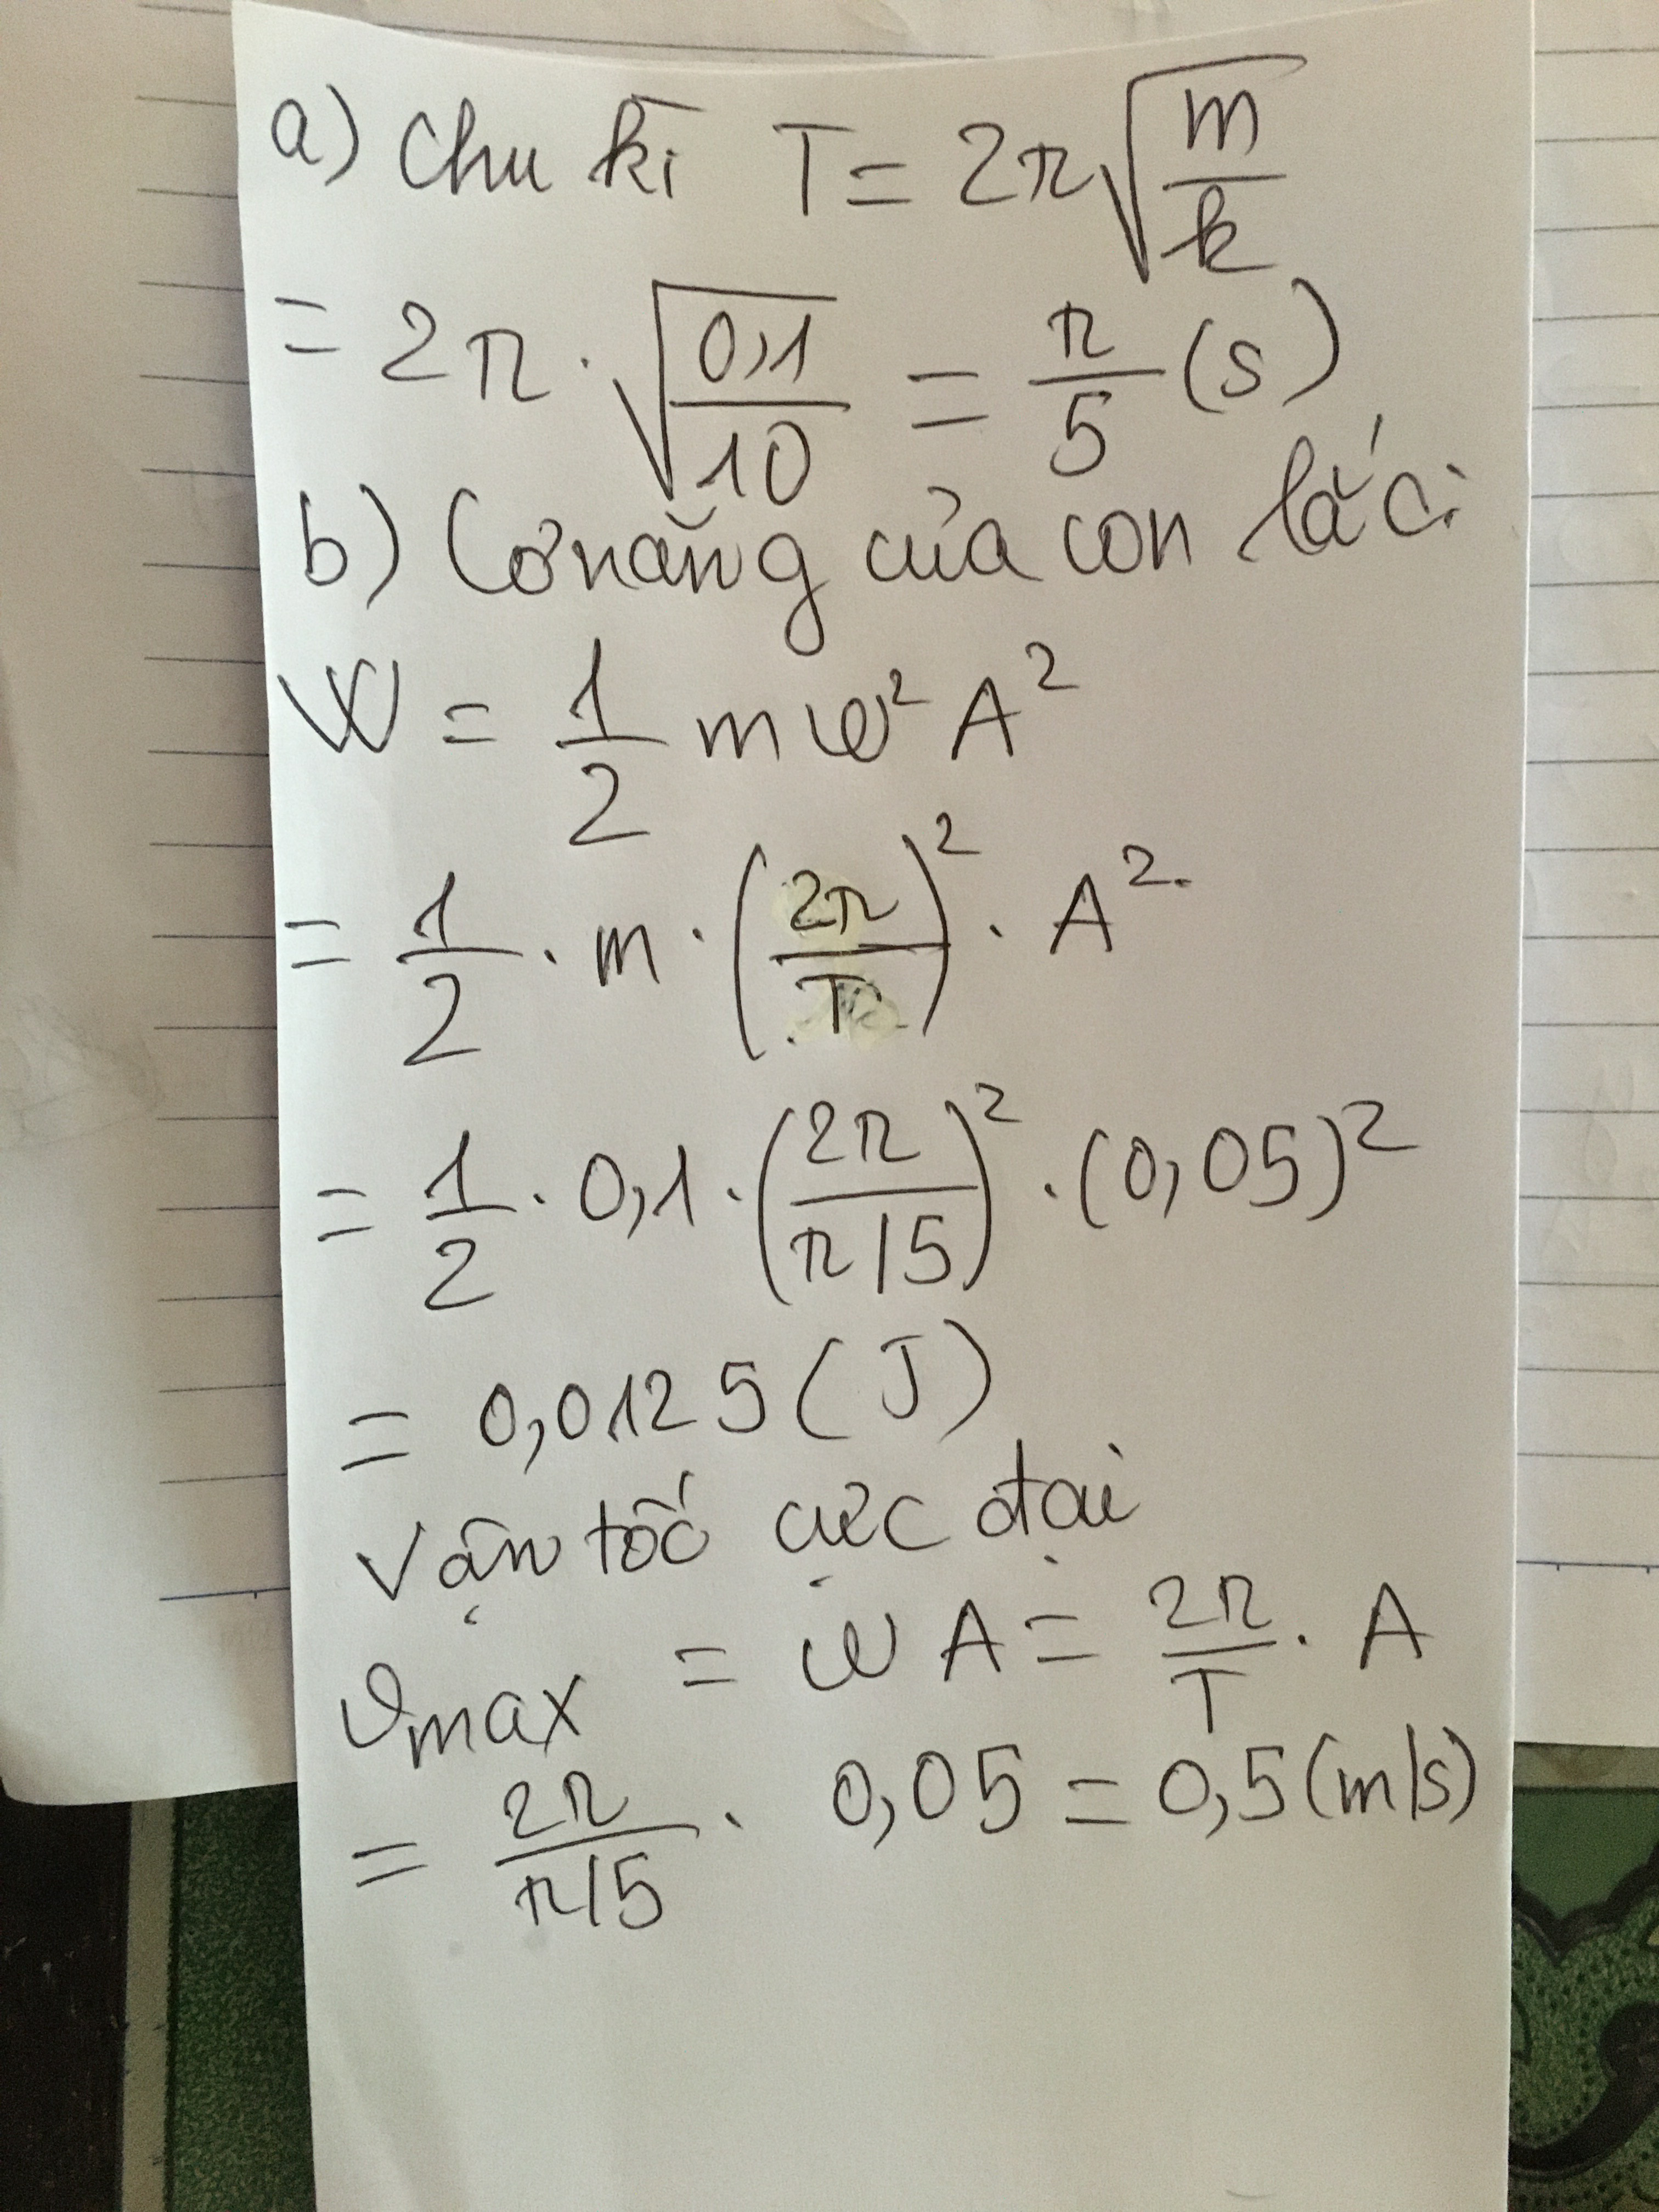 a) Chu kì T = 2π√(m/k)
= 2π · √(0,1/10) = π/5 (s)
b) Cơ năng của con lắc:
W = 1/2 mω² A²
= 1/2 · m · (2π/T)² · A².
= 1/2 · 0,1 · (2π/π/5)² · (0,05)²
= 0,0125 (J)
Vận tốc cực đại
vmax = ωA = 2π/T · A
= 2π/π/5 · 0,05 = 0,5 (m/s)